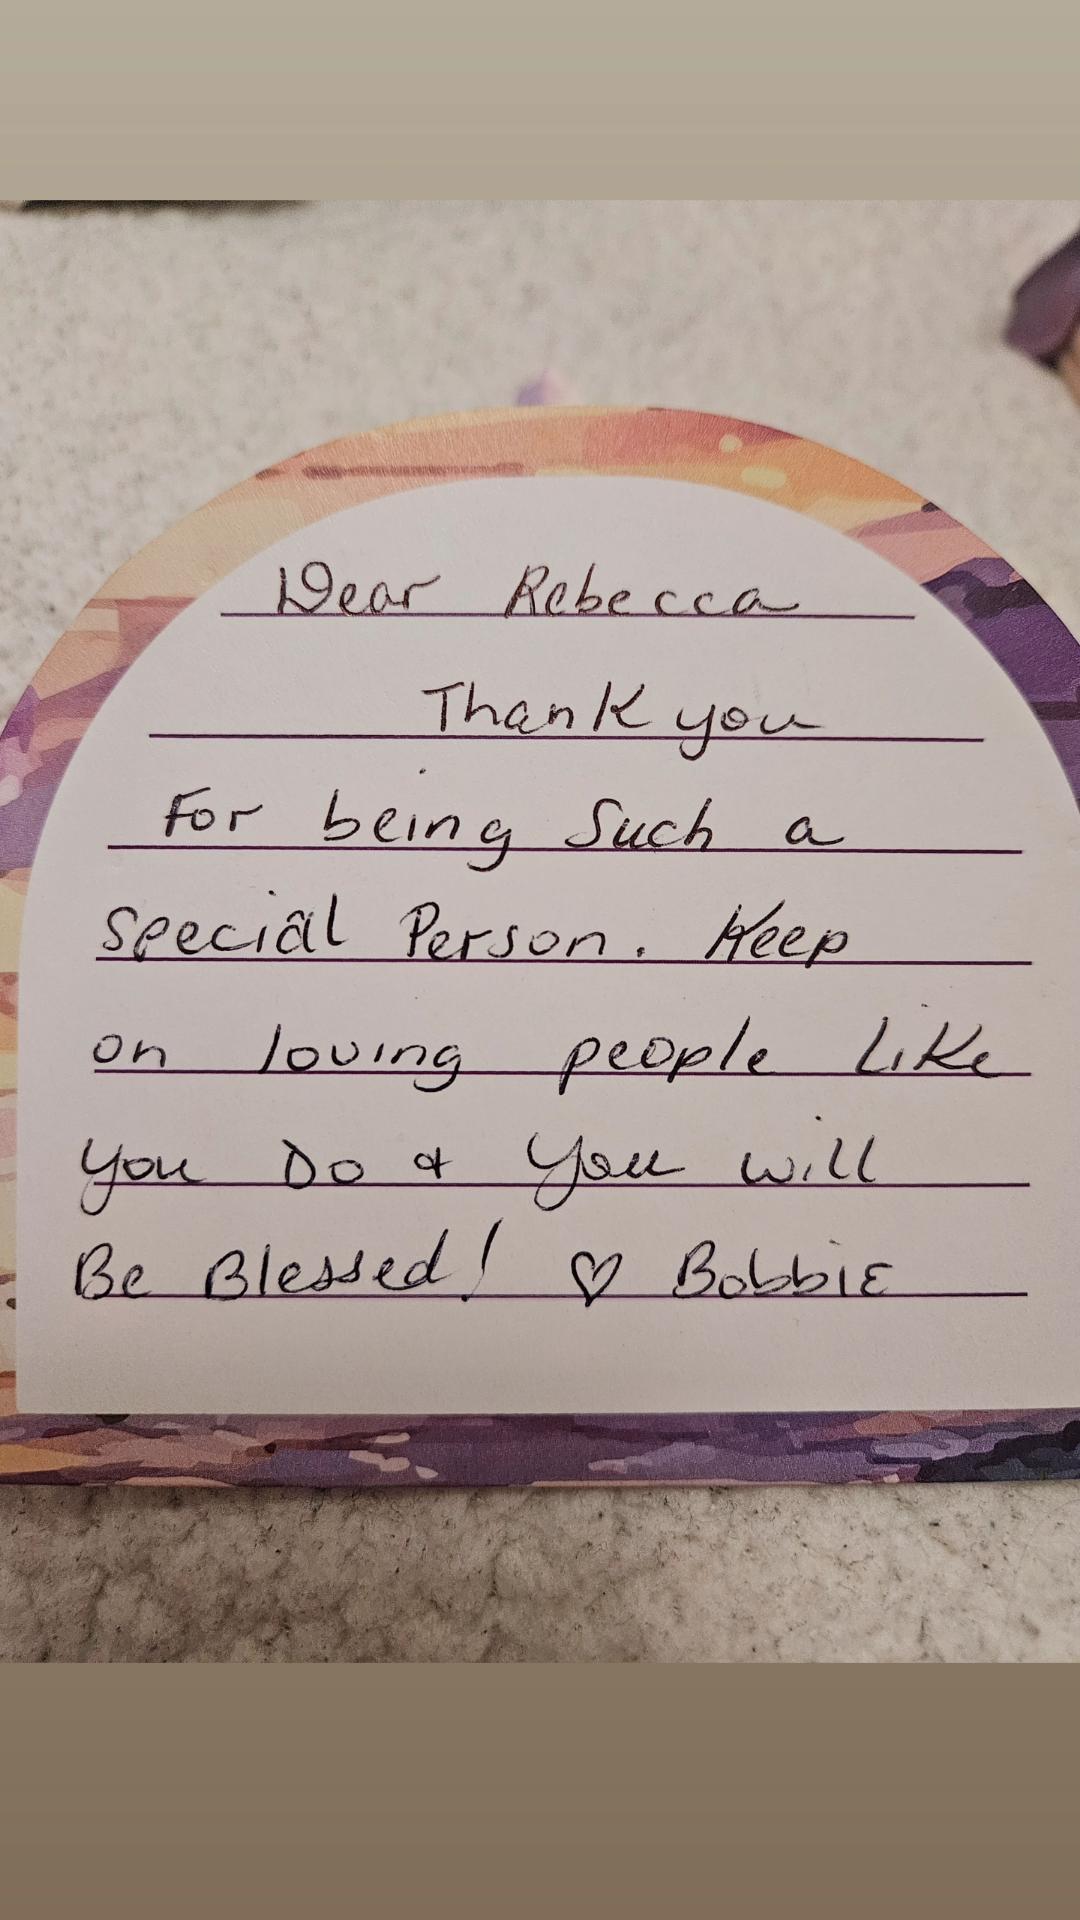 Dear Rebecca
Thank you
For being Such a
special Person. Keep
on loving people Like
you Do & You will
Be Blessed! ♡ Bobbie